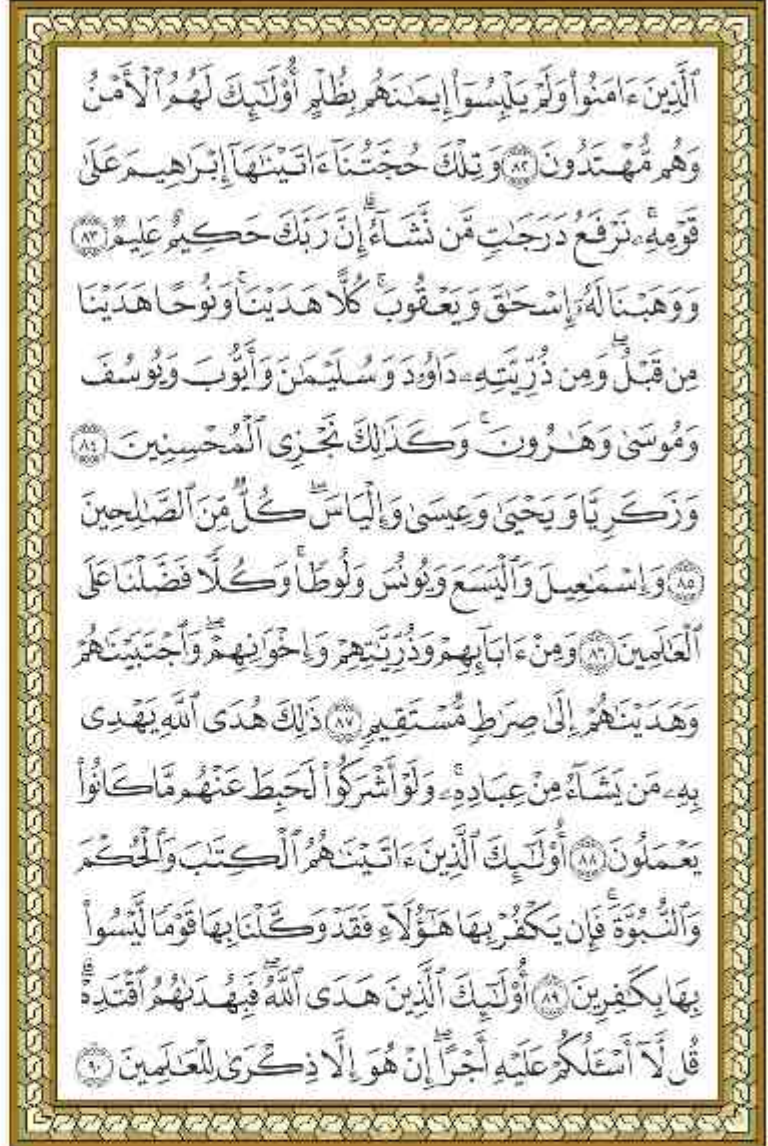 ٱلَّذِينَ ءَامَنُوا۟ وَلَمْ يَلْبِسُوٓا۟ إِيمَـٰنَهُم بِظُلْمٍ أُو۟لَـٰٓئِكَ لَهُمُ ٱلْأَمْنُ
وَهُم مُّهْتَدُونَ ﴿٨٢﴾ وَتِلْكَ حُجَّتُنَآ ءَاتَيْنَـٰهَآ إِبْرَٰهِيمَ عَلَىٰ
قَوْمِهِۦ ۚ نَرْفَعُ دَرَجَـٰتٍ مَّن نَّشَآءُ ۗ إِنَّ رَبَّكَ حَكِيمٌ عَلِيمٌ ﴿٨٣﴾
وَوَهَبْنَا لَهُۥٓ إِسْحَـٰقَ وَيَعْقُوبَ ۚ كُلًّا هَدَيْنَا ۚ وَنُوحًا هَدَيْنَا
مِن قَبْلُ ۖ وَمِن ذُرِّيَّتِهِۦ دَاوُۥدَ وَسُلَيْمَـٰنَ وَأَيُّوبَ وَيُوسُفَ
وَمُوسَىٰ وَهَـٰرُونَ ۚ وَكَذَٰلِكَ نَجْزِى ٱلْمُحْسِنِينَ ﴿٨٤﴾
وَزَكَرِيَّا وَيَحْيَىٰ وَعِيسَىٰ وَإِلْيَاسَ ۖ كُلٌّ مِّنَ ٱلصَّـٰلِحِينَ
﴿٨٥﴾ وَإِسْمَـٰعِيلَ وَٱلْيَسَعَ وَيُونُسَ وَلُوطًا ۚ وَكُلًّا فَضَّلْنَا عَلَى
ٱلْعَـٰلَمِينَ ﴿٨٦﴾ وَمِنْ ءَابَآئِهِمْ وَذُرِّيَّـٰتِهِمْ وَإِخْوَٰنِهِمْ ۖ وَٱجْتَبَيْنَـٰهُمْ
وَهَدَيْنَـٰهُمْ إِلَىٰ صِرَٰطٍ مُّسْتَقِيمٍ ﴿٨٧﴾ ذَٰلِكَ هُدَى ٱللَّهِ يَهْدِى
بِهِۦ مَن يَشَآءُ مِنْ عِبَادِهِۦ ۚ وَلَوْ أَشْرَكُوا۟ لَحَبِطَ عَنْهُم مَّا كَانُوا۟
يَعْمَلُونَ ﴿٨٨﴾ أُو۟لَـٰٓئِكَ ٱلَّذِينَ ءَاتَيْنَـٰهُمُ ٱلْكِتَـٰبَ وَٱلْحُكْمَ
وَٱلنُّبُوَّةَ ۚ فَإِن يَكْفُرْ بِهَا هَـٰٓؤُلَآءِ فَقَدْ وَكَّلْنَا بِهَا قَوْمًا لَّيْسُوا۟
بِهَا بِكَـٰفِرِينَ ﴿٨٩﴾ أُو۟لَـٰٓئِكَ ٱلَّذِينَ هَدَى ٱللَّهُ ۖ فَبِهُدَىٰهُمُ ٱقْتَدِهْ ۗ
قُل لَّآ أَسْـَٔلُكُمْ عَلَيْهِ أَجْرًا ۖ إِنْ هُوَ إِلَّا ذِكْرَىٰ لِلْعَـٰلَمِينَ ﴿٩٠﴾